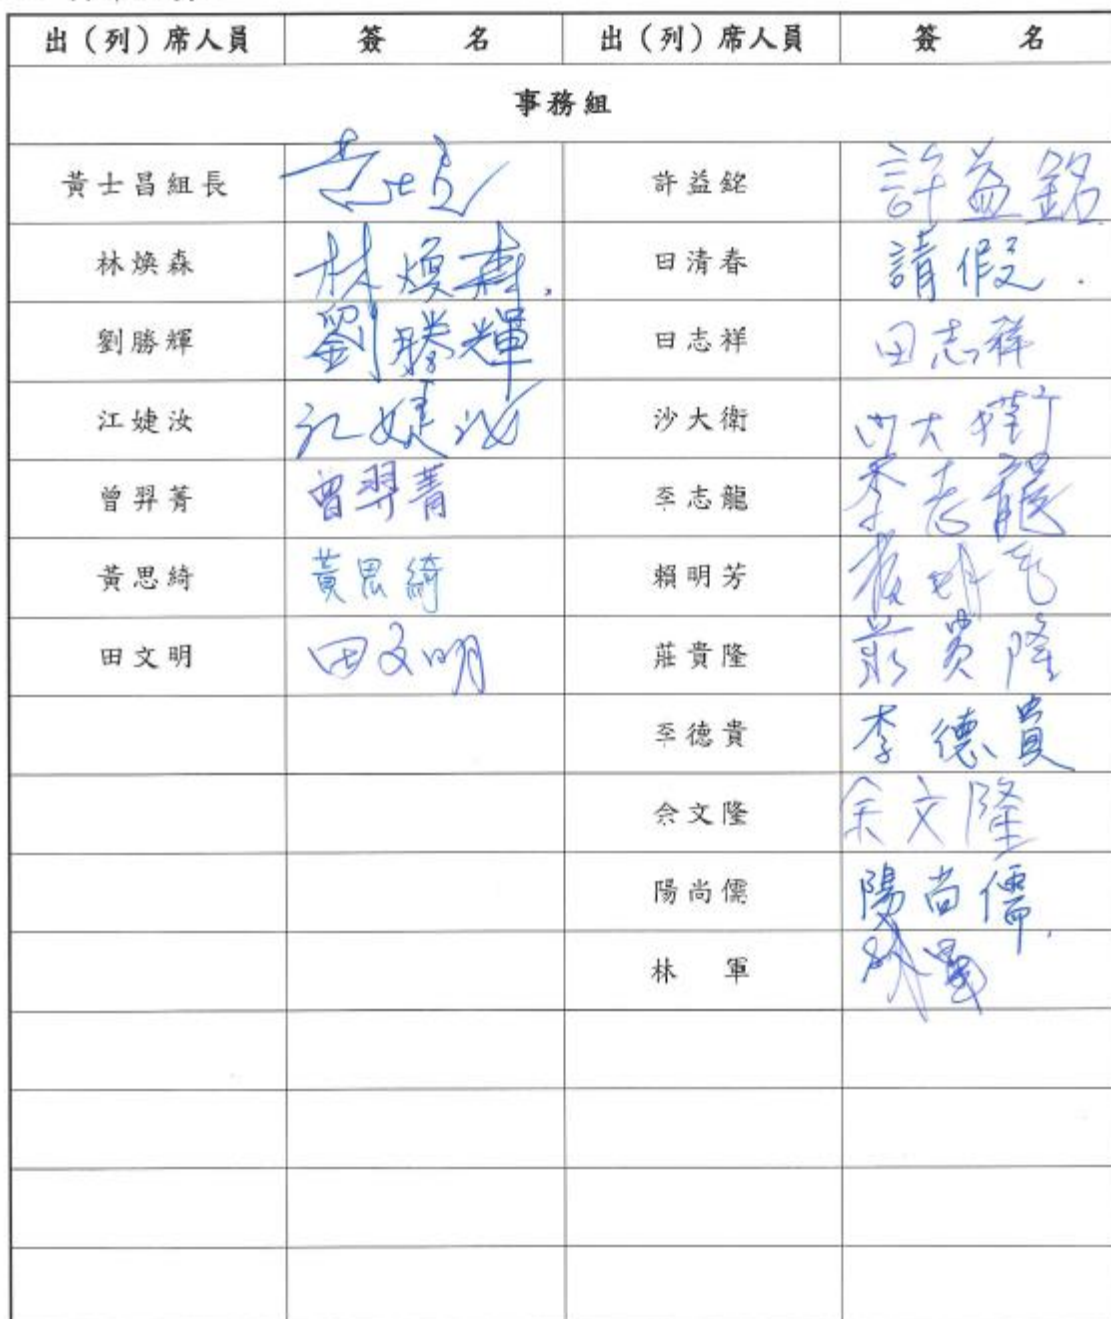 出（列）席人員 簽 名 出（列）席人員 簽 名
事務組
黃士昌組長 許益銘 許益銘
林煥森 林煥森. 田清春 請假.
劉勝輝 劉勝輝 田志祥 田志祥
江婕汝 江婕汝 沙大衛 沙大衛
曾羿菁 曾羿菁 李志龍 李志龍
黃思綺 黃思綺 賴明芳
田文明 田文明 莊貴隆 莊貴隆
李德貴 李德貴
余文隆 余文隆
陽尚儒 陽尚儒.
林 軍 林軍